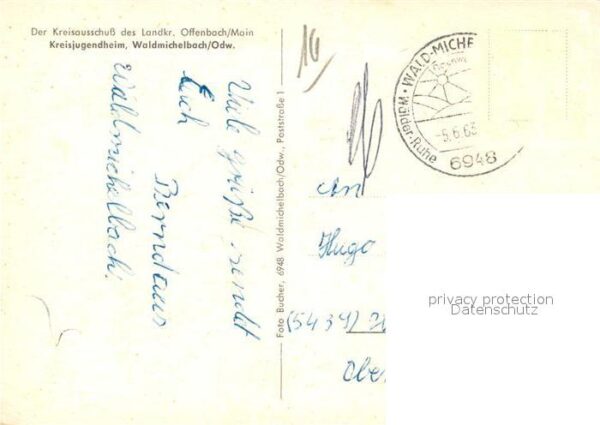 Der Kreisausschuß des Landkr. Offenbach/Main
Kreisjugendheim, Waldmichelbach/Odw.
Viele Grüße sendet
Euch
Bernd aus
Waldmichelbach.
Foto Bucher, 6948 Waldmichelbach/Odw., Poststraße 1
WALD-MICHE
Wälder·Ruhe
-5.6.63
6948
An
Hugo
(5439)
Obe
privacy protection
Datenschutz